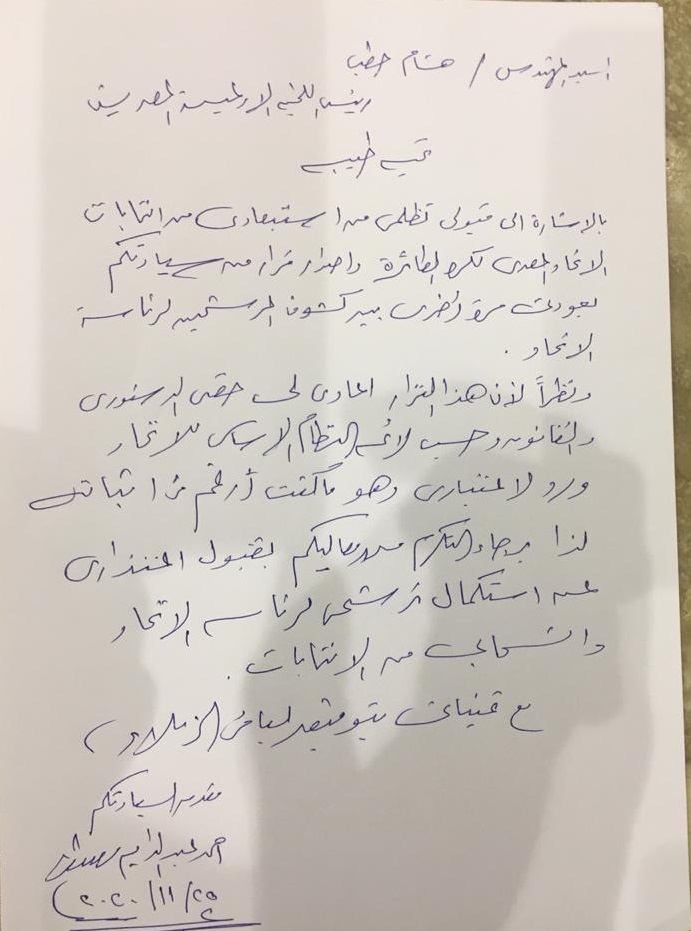 السيد المهندس / هشام حطب
رئيس اللجنة الاولمبية المصرية
تحية طيبة
بالاشارة الى قبولى تظلمى من استبعادى من انتخابات
الاتحاد المصرى للكرة الطائرة واصدار قرار من سيادتكم
بعودتى مرة اخرى بين كشوف المرشحين لرئاسة
الاتحاد .
ونظراً لأن هذا القرار اعاد لى حقى الدستورى
والقانونى وحسب لائحة النظام الاساسى للاتحاد
ورد لاعتبارى وهو ما كنت أرغب فى اثباته
لذا برجاء التكرم من معاليكم بقبول اعتذارى
عن استكمال ترشحى لرئاسة الاتحاد
وانسحابى من الانتخابات .
مع تمنياتى بتوفيق لباقى الزملاء
مقدمه لسيادتكم
احمد عبد الدايم
٢٠٢٠/١١/٢٥